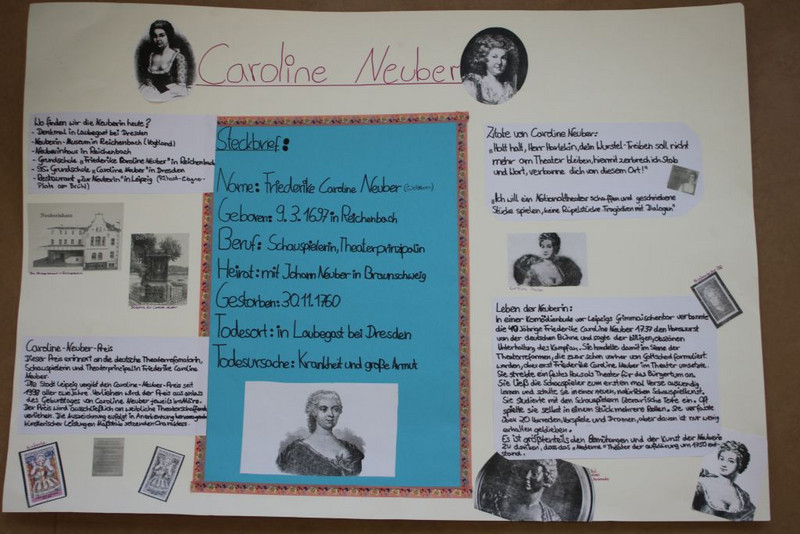 Caroline Neuber
Wo finden wir die Neuberin heute?
- Denkmal in Laubegast bei Dresden
- Neuberin-Museum in Reichenbach (Vogtland)
- Neuberinhaus in Reichenbach
- Grundschule "Friederike Caroline Neuber" in Reichenbach
- 95. Grundschule "Caroline Neuber" in Dresden
- Restaurant "Zur Neuberin" in Leipzig
Platz am Brühl)
Caroline-Neuber-Preis
Dieser Preis erinnert an die deutsche Theaterreformatorin,
Schauspielerin und Theaterprinzipalin Friederike Caroline
Neuber.
Die Stadt Leipzig vergibt den Caroline-Neuber-Preis seit
1998 aller zwei Jahre. Verliehen wird der Preis aus Anlass
des Geburtstages von Caroline Neuber
Der Preis wird ausschließlich an weibliche Theaterschaffende
verliehen. Die Auszeichnung erfolgt in Anerkennung hervorragender
künstlerischer Leistungen Maßstäbe setzenden
Steckbrief:
Name: Friederike Caroline Neuber
Geboren: 9.3.1697 in Reichenbach
Beruf: Schauspielerin, Theaterprinzipalin
Heirat: mit Johann Neuber in Braunschweig
Gestorben: 30.11.1760
Todesort: in Laubegast bei Dresden
Todesursache: Krankheit und große Armut
Zitate von Caroline Neuber:
"Halt halt, Herr Harlekin, dein Wurstel-Treiben soll nicht
mehr am Theater bleiben, hiermit zerbrech ich Stab
und Wort, verbanne dich von diesem Ort!"
"Ich will ein Nationaltheater schaffen und geschriebene
Stücke spielen, keine Rüpelstücke Tragödien mit Dialogen"
Leben der Neuberin:
In einer Komödienbude vor Leipzigs Grimmaischentor verbannte
die 40 jährige Friederike Caroline Neuber 1737 den Hanswurst
von der deutschen Bühne und sagte der billigen, obszönen
Unterhaltung den Kampf an. Sie handelte damit im Sinne der
Theaterreformen, die zwar schon vorher von Gottsched formuliert
wurden, aber erst Friederike Caroline Neuber im Theater umsetzte.
Sie strebte ein festes Haus als Theater für das Bürgertum an.
Sie ließ die Schauspieler zum ersten mal Verse auswendig
lernen und schulte sie in einer neuen, natürlichen Schauspielkunst.
Sie studierte mit den Schauspielern literarische Texte ein. Oft
spielte sie selbst in einem Stück mehrere Rollen. Sie verfasste
über 20 Vorreden, Vorspiele und Dramen, aber davon ist nur wenig
erhalten geblieben.
Es ist größtenteils den Bemühungen und der Kunst der Neuberin
zu danken, dass das "moderne" Theater der Aufklärung um 1750 ent-
stand.